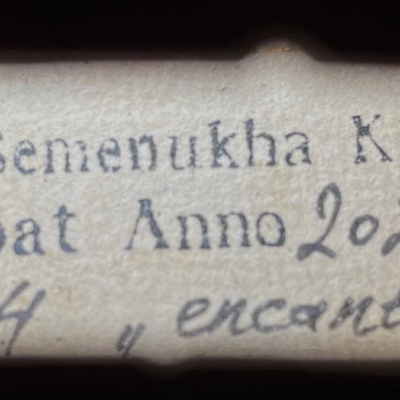 Semenukha K
bat Anno 202
4 „ encant